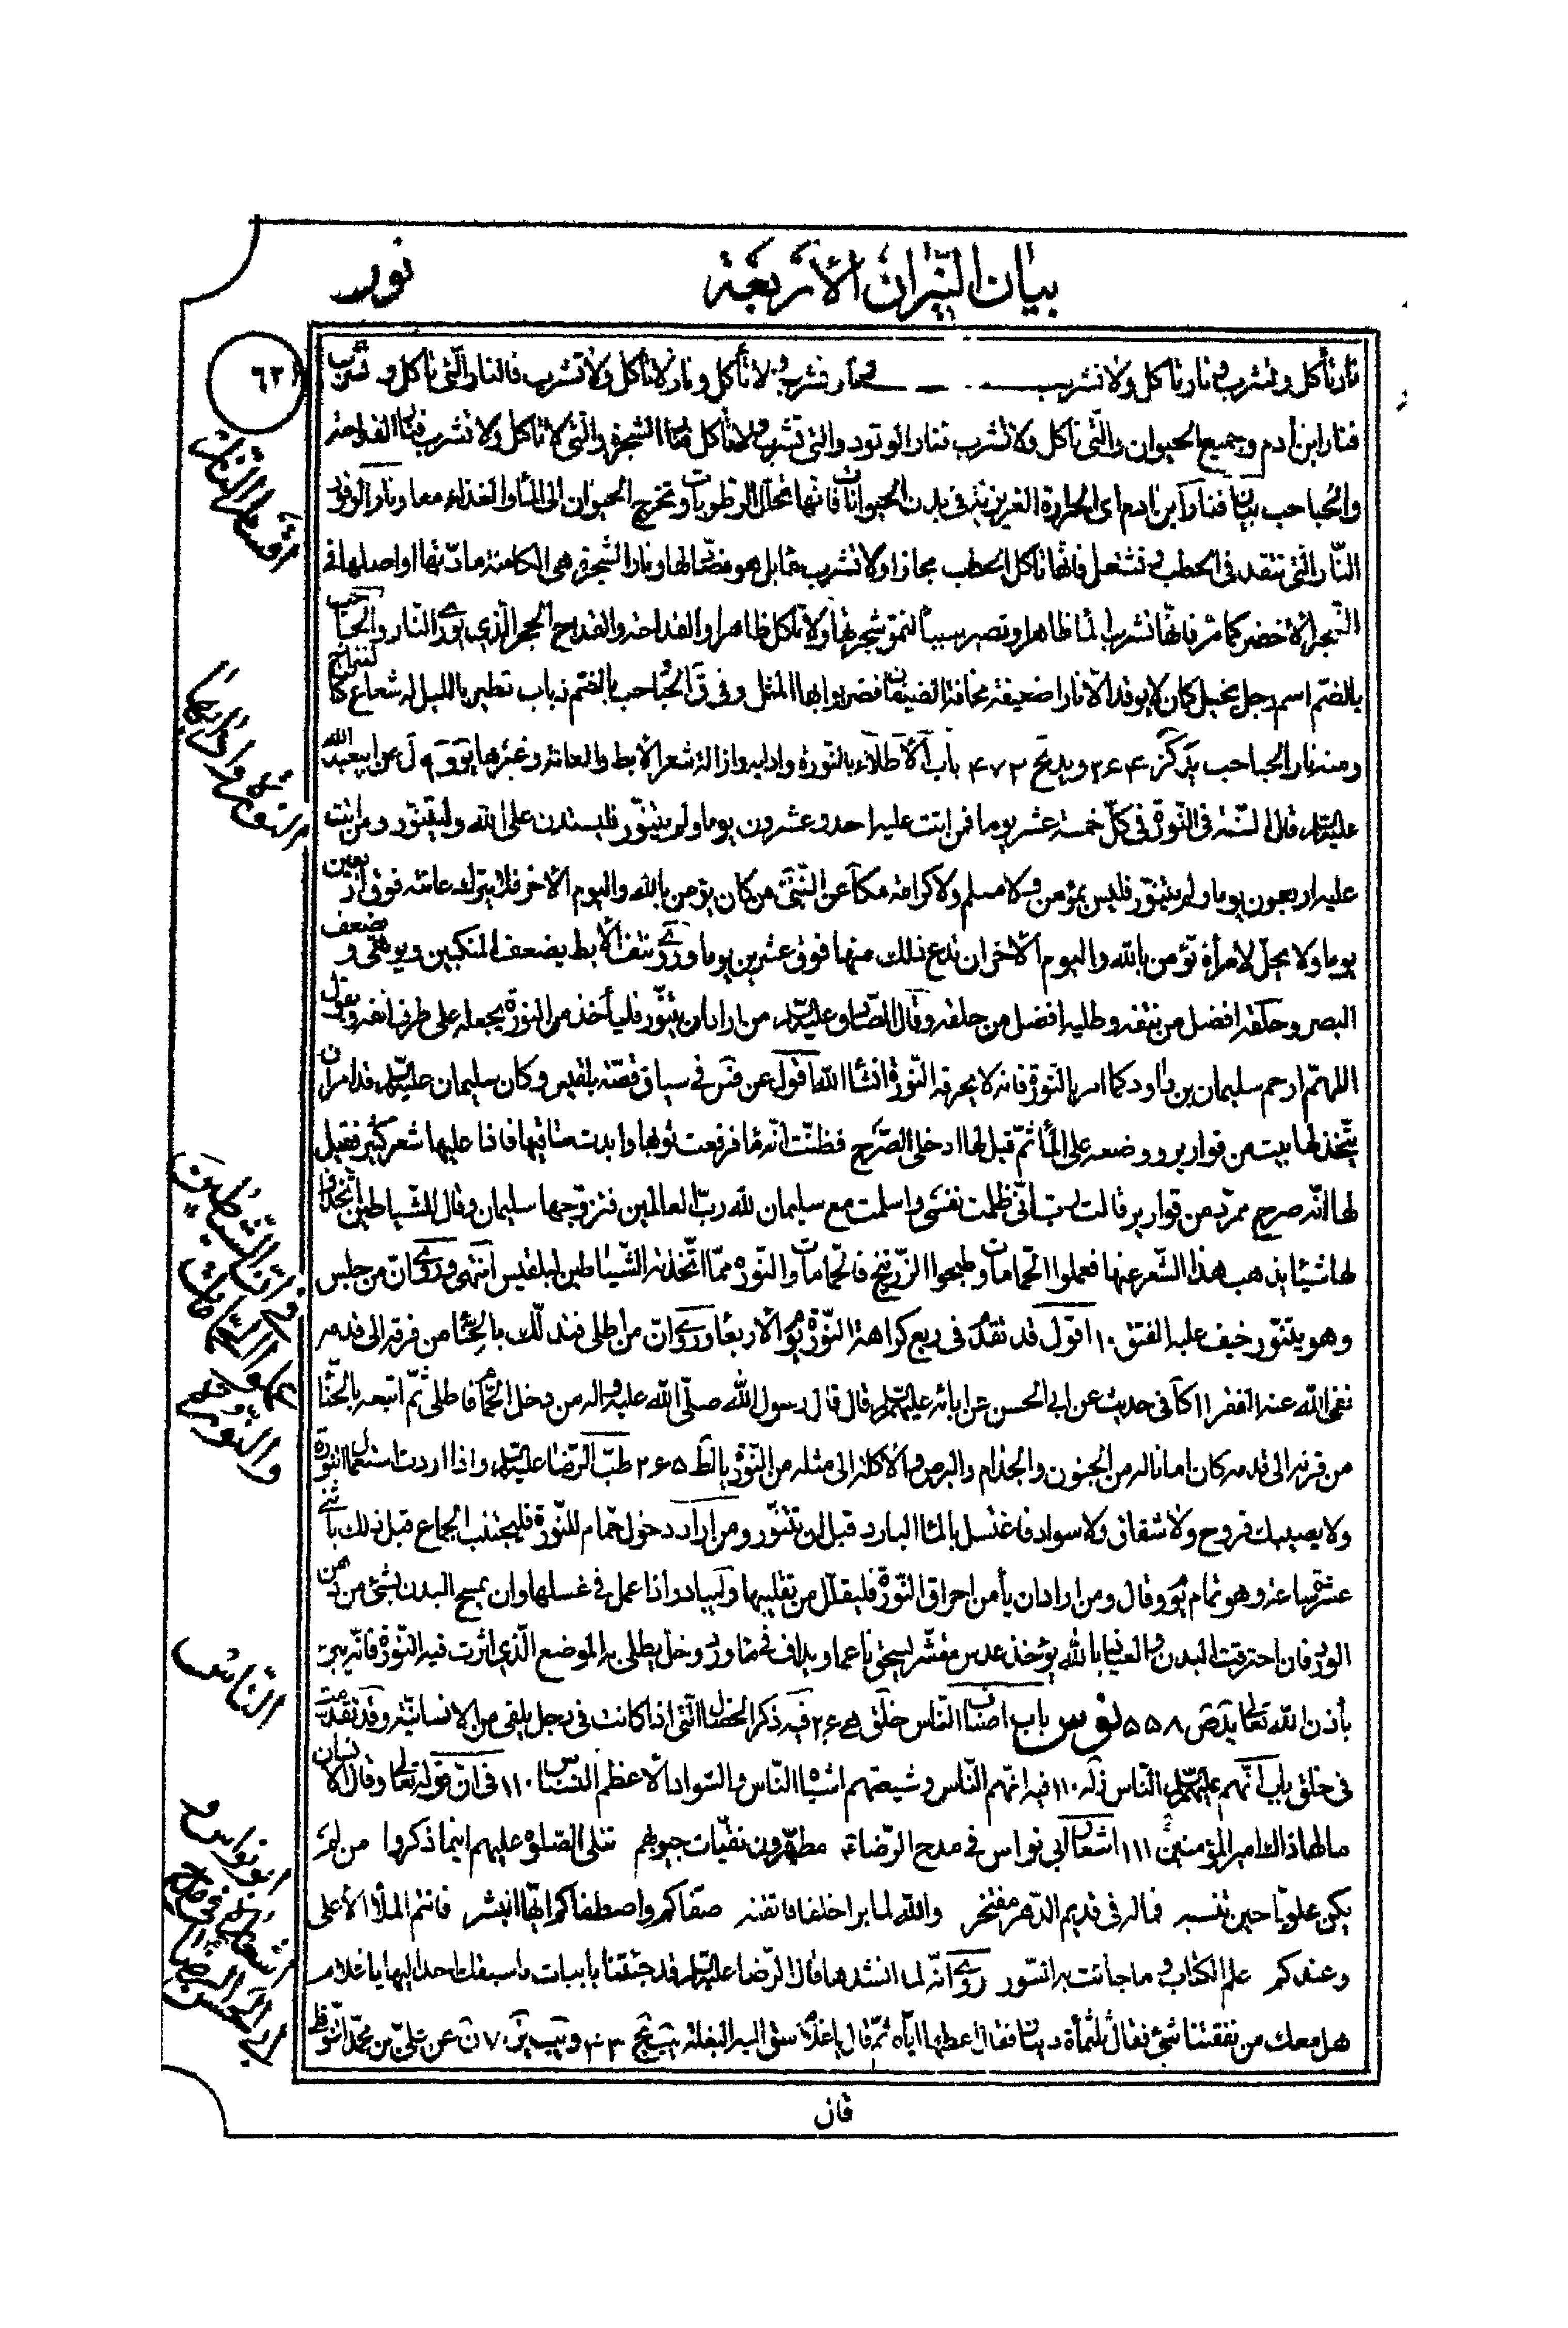 بيان النيران الأربعة
نور
نار تأكل وتشرب ونار تأكل ولا تشرب ونار تشرب ولا تأكل ونار لا تأكل ولا تشرب فالنار الّتي تأكل وتشرب
فنار ابن آدم وجميع الحيوان والّتي تأكل ولا تشرب فنار الوقود والتي تشرب ولا تأكل فنار الشجرة والّتي لا تأكل ولا تشرب فنار القداحة
والحباحب بيان فنار ابن آدم اى الحرارة الغريزيّة في بدن الحيوانات فانّها تحلّل الرّطوبات وتخرج الحيوان الى الماء والغذاء معا ونار الوقود
النّار الّتي تتّقد في الحطب وتشتعل فانّها تأكل الحطب مجازا ولا تشرب ماء بل هو مضادّ لها ونار الشّجرة هي الكامنة مادّتها او اصلها في
الشّجر الأخضر كما مرّ فانّها تشرب الماء ظاهرا وتصير سببا لنموّ شجرتها ولا تأكل ظاهرا والقداحة والقداح الحجر الّذي يورى النّار والحباحب
بالضّم اسم رجل بخيل كان لا يوقد الّا نارا ضعيفة مخافة الضيفان فضربوا بها المثل وفي ق الحُباحب بالضّم ذباب تطير بالليل له شعاع كالسّراج
ومنه نار الحباحب يد كز ٢٦٤ ويد يح ٤٧٢ باب الأطلاء بالنّورة وادابه وازالة شعر الأبط والعانة وغيرها يو و ٩ ل عن ابيعبد الله
عليه السّلم قال السّنّة في النّورة في كلّ خمسة عشر يوما فمن اتت عليه احد وعشرون يوما ولم يتنوّر فليستدن على الله وليتنوّر ومن اتت
عليه اربعون يوما ولم يتنوّر فليس بمؤمن ولا مسلم ولا كرامة مكا عن النّبيّ من كان يؤمن بالله واليوم الآخر فلا يترك عانته فوق اربعين
يوما ولا يحلّ لامرأة تؤمن بالله واليوم الآخر ان تدع ذلك منها فوق عشرين يوما وروى نتف الأبط يضعف المنكبين ويوهى ويضعف
البصر وحلقه افضل من نتفه وطليه افضل من حلقه وقال الصّادق عليه السّلم من اراد ان يتنوّر فليأخذ من النورة يجعله على طرف انفه ويقول
اللهمّ ارحم سليمان بن داود كما امر بالنورة فانه لا يحرقه النّورة انشاء الله اقول عن فس في سياق قصّة بلقيس وكان سليمان عليه السّلم قد امر ان
يتّخذ لها بيت من قوارير ووضعه على الماء ثمّ قيل لها ادخلى الصّرح فظنّت انّه ماء فرفعت ثوبها وابدت ساقيها فاذا عليها شعر كثير فقيل
لها انّه صرح ممرّد من قوارير قالت ربّ انّى ظلمت نفسى واسلمت مع سليمان لله ربّ العالمين فتزوّجها سليمان وقال للشّياطين اتّخذوا
لها شيئا يذهب هذا الشّعر عنها فعملوا الحمّامات وطبخوا الزّرنيخ فالحمّامات والنّورة ممّا اتّخذته الشّياطين لبلقيس انتهى وروى انّ من جلس
وهو يتنوّر خيف عليه الفتق ١٠ اقول قد تقدّم في ربع كراهة النّورة يوم الأربعاء وروى انّ من اطلى فتدلّك بالحنّاء من قرنه الى قدمه
نفى الله عنه الفقر ١١ كا في حديث عن ابى الحسن عن ابائه عليهم السّلم قال قال رسول الله صلّى الله عليه واله من دخل الحمّام فاطلى ثمّ اتبعه بالحنّاء
من قرنه الى قدمه كان امانا له من الجنون والجذام والبرص والاكلة الى مثله من النّورة يا لط ٢٦٥ طبّ الرّضا عليه السّلم واذا اردت استعمال النّورة
ولا يصيبك قروح ولا شقاق ولا سواد فاغتسل بالماء البارد قبل ان تتنوّر ومن اراد دخول حمّام للنّورة فليجتنب الجماع قبل ذلك باثنى
عشر ساعة وهو تمام يوم وقال ومن اراد ان يأمن احراق النّورة فليقلّل من تقليبها وليبادر اذا عمل في غسلها وان يمسح البدن بشئ من دهن
الورد فان احترقت البدن والعياذ بالله يؤخذ عدس مقشّر يسحق ناعما ويداف في ماء ورد وخلّ يطلى به الموضع الّذي اثرت فيه النّورة فانّه يبرء
بأذن الله تعالى يد ص ٥٥٨ نوس باب اصناف النّاس خلق هـ ٢٦ فيه ذكر الخصال الّتي اذا كانت في رجل يلقى من الانسانيّة وقد تقدّمت
في خلق باب انّهم عليهم السّلم النّاس ز له ١١٠ فيه انّهم النّاس وشيعتهم اشباه النّاس والسّواد الأعظم النسناس ١١٠ في انّ قوله تعالى وقال الأنسان
مالها ذاك امير المؤمنين ١١١ اشعار ابي نواس في مدح الرّضا مطهّرون نقيّات جيوبهم تتلى الصّلوة عليهم اينما ذكروا من لم
يكن علويّا حين تنسبه فماله في قديم الدّهر مفتخر والله لما برا خلقا فاتقنه صفّاكم واصطفاكم ايّها البشر فانتم الملأ الأعلى
وعندكم علم الكتاب وما جائت به السّور روى انّه لما انشدها قال الرّضا عليه السّلم قد جئتنا بابيات ما سبقك احد اليها يا غلام
هل معك من نفقتنا شئ فقال ثلثمأة دينار فقال اعطها ايّاه ثمّ قال يا غلام سق اليه البغلة
فان
اقسام النار
النّاس
ابو نواس و
اشعاره في مدح
ابى الحسن الرضا